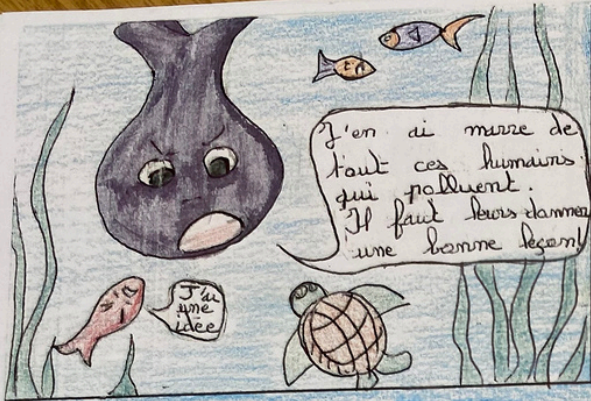 J'en ai marre de
tout ces humains
qui polluent.
Il faut leurs donner
une bonne leçon!
J'ai
une
idée